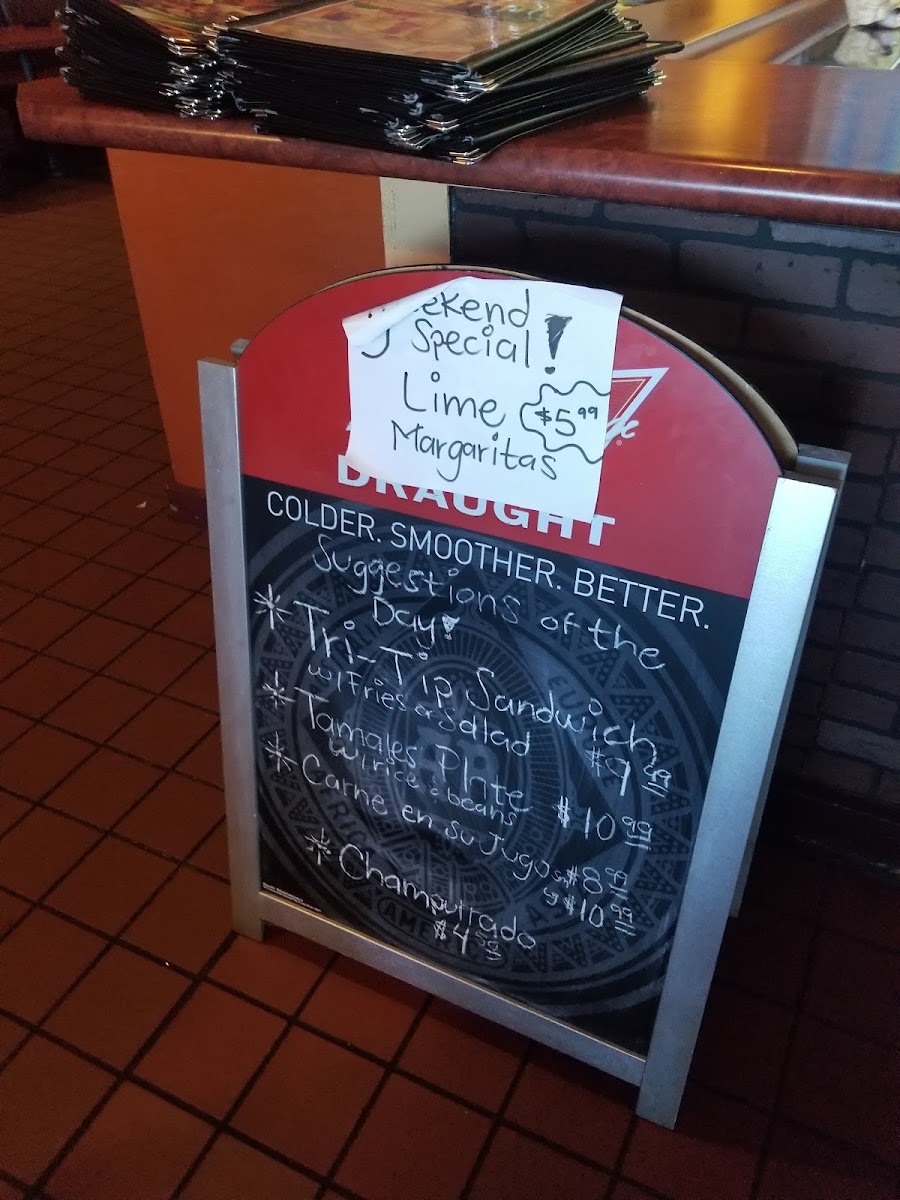 eekend
Special!
Lime $5.99
Margaritas
DRAUGHT
COLDER. SMOOTHER. BETTER.
Suggestions of the
Day!
Tri-Tip Sandwich
w/Fries or Salad $9.99
Tamales Plate
w/rice & beans $10.99
Carne en su Jugo sm $8.99
$10.99
Champurrado
$4.50